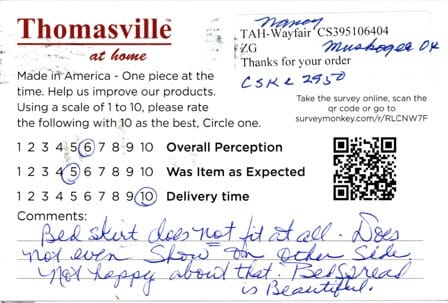 Thomasville
at home
Made in America - One piece at the
time. Help us improve our products.
Using a scale of 1 to 10, please rate
the following with 10 as the best, Circle one.
1 2 3 4 5 6 7 8 9 10 Overall Perception
1 2 3 4 5 6 7 8 9 10 Was Item as Expected
1 2 3 4 5 6 7 8 9 10 Delivery time
Comments:
Bed skirt does not fit at all. Does
not even show on other side.
Not happy about that. BedSpread
is Beautiful.
Nancy
TAH-Wayfair CS395106404
ZG
Muskogee OK
Thanks for your order
CSKL 2950
Take the survey online, scan the
qr code or go to
surveymonkey.com/r/RLCNW7F